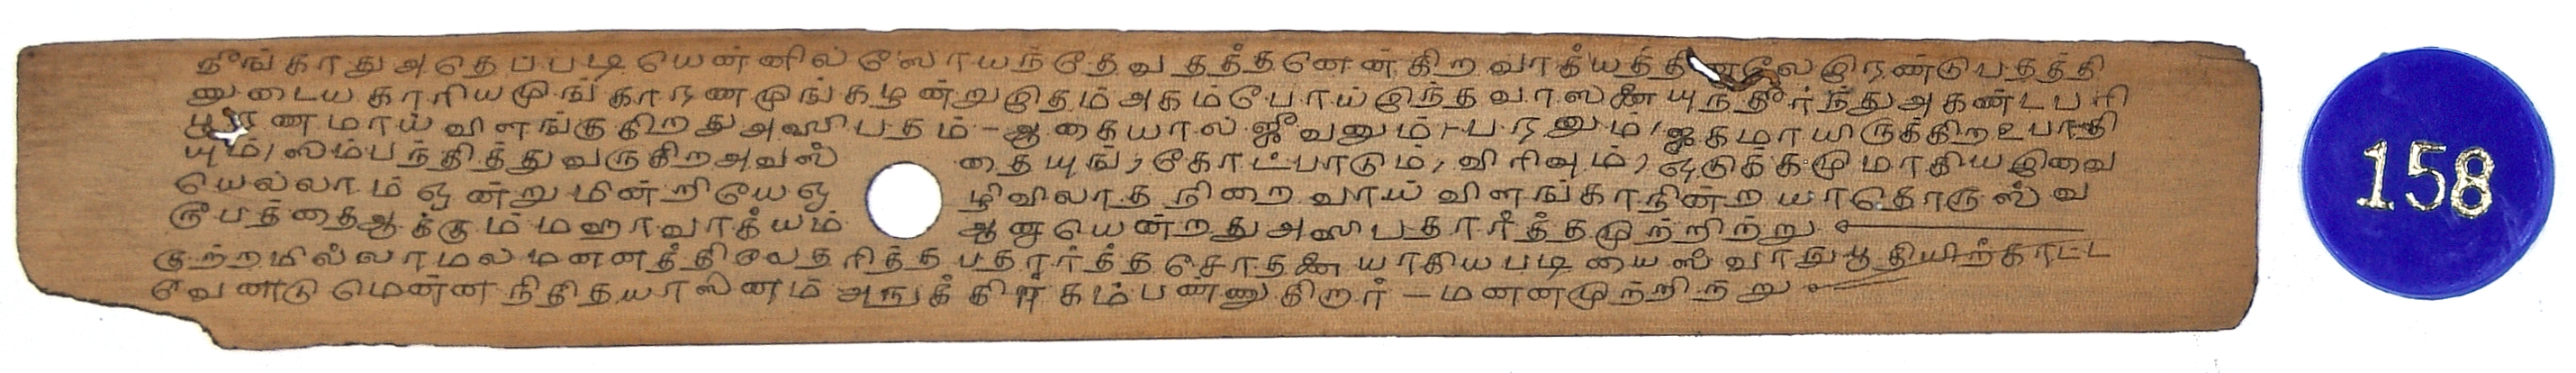 நீங்காது அதெப்படியென்னில் ஸோயந்தேவதத்தனென்கிற வாக்யத்தினாலே இரண்டு பதத்தி
னுடைய காரியமுங் காரணமுங் கழன்று இதம் அகம் போய் இந்த வாஸனையுந் தீர்ந்து அகண்டபரி
பூரணமாய் விளங்குகிறது அஸிபதம் - ஆகையால் ஜீவனும், பரனும், ஜகமாயிருக்கிற உபாதி
யும், ஸம்பந்தித்து வருகிற அவஸ்தையுங், கோட்பாடும், விரிவும், ஒடுக்கமுமாகிய இவை
யெல்லாம் ஒன்றுமின்றியே ஒழிவிலாத நிறைவாய் விளங்காநின்ற யாதொரு ஸ்வ
ரூபத்தை ஆக்கும் மஹாவாக்யம் ஆனயென்றது அஸிபதார்த்தமுற்றிற்று
குற்றமில்லாமல் மனனத்திலவதரித்த பதார்த்த சோதனையாகியபடியை ஸ்வாநுபூதியிற்காட்ட
வேண்டுமென்ன நிதித்யாஸனம் அநுக்கிரகம் பண்ணுகிறார் - மனனமுற்றிற்று
158